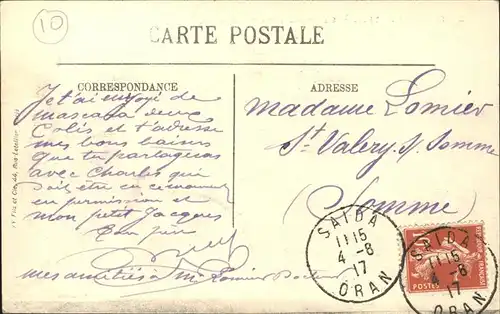 10
CARTE POSTALE
CORRESPONDANCE
ADRESSE
Je t'ai envoyé de
mascara deux
Colis et t'adresse
mes bons baisers
que tu partageras
avec Charles qui
doit être en ce moment
en permission et
mon petit Jacques
Ton père
mes amitiés à Mr Lomier
Madame Lomier
St Valery s/ Somme
(Somme)
SAIDA
11 15
4 - 8
17
ORAN
SAIDA
11 15
4 - 8
17
ORAN
POSTES